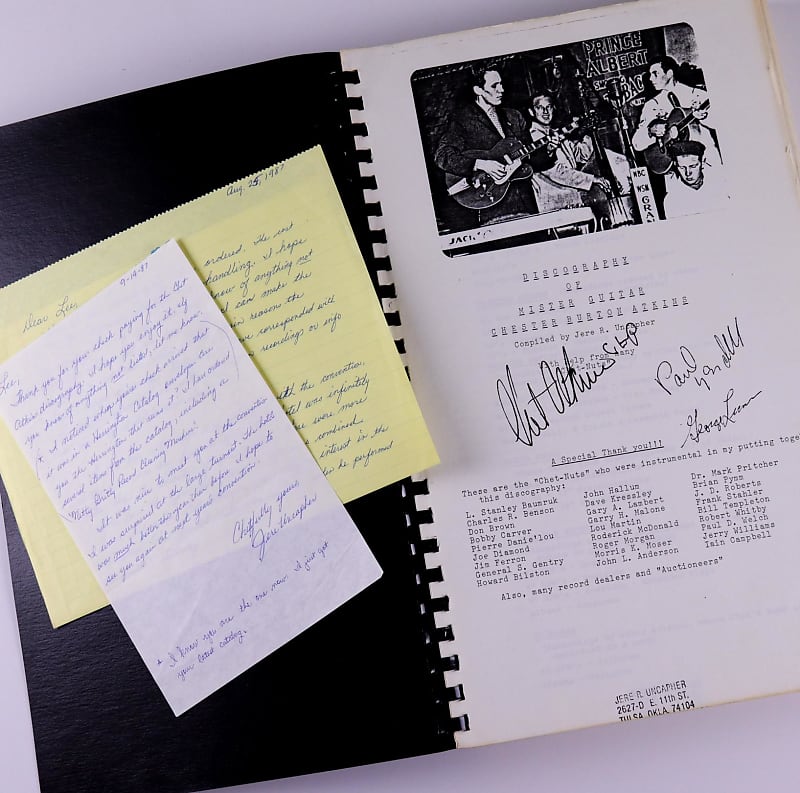 Aug. 25, 1987
Dear Lee,
ordered. The cost
handling. I hope
know of anything not
I can make the
reasons the
have corresponded with
recordings or info
with the convention.
was infinitely
were more
combined
interest in the
he performed
9-14-87
Lee,
Thank you for your check paying for the Chet
Atkins discography. I hope you enjoy it. If
you know of anything not listed, let me know.
I noticed when your check arrived that
it was in a Herrington Catalog envelope. Are
you the Herrington that runs it? I have ordered
several items from the catalog, including a
"Nitty Gritty Record Cleaning Machine".
It was nice to meet you at the convention.
I was surprised at the large turnout. The hotel
was much better this year than before. I hope to
see you again at next year's convention.
Chetfully yours,
Jere Uncapher
* I know you are the one now. I just got
your latest catalog.
PRINCE
ALBERT
NBC
WSM
GRAN
DISCOGRAPHY
OF
MISTER GUITAR
CHESTER BURTON ATKINS
Compiled by Jere R. Uncapher
With Help from Many
"Chet-Nuts"
Chet Atkins CGP
Paul Yandell
George Lunn
A Special Thank you!!!
These are the "Chet-Nuts" who were instrumental in my putting together
this discography:
L. Stanley Baumruk John Hallum Dr. Mark Pritcher
Charles R. Benson Dave Kressley Brian Pynm
Don Brown Gary A. Lambert J. D. Roberts
Bobby Carver Garry R. Malone Frank Stahler
Pierre Danie'lou Lou Martin Bill Templeton
Joe Diamond Roderick McDonald Robert Whitby
Jim Ferron Roger Morgan Paul D. Welch
General S. Gentry Morris K. Moser Jerry Williams
Howard Bilston John L. Anderson Iain Campbell
Also, many record dealers and "Auctioneers"
JERE R. UNCAPHER
2627-D E. 11th ST.
TULSA, OKLA. 74104